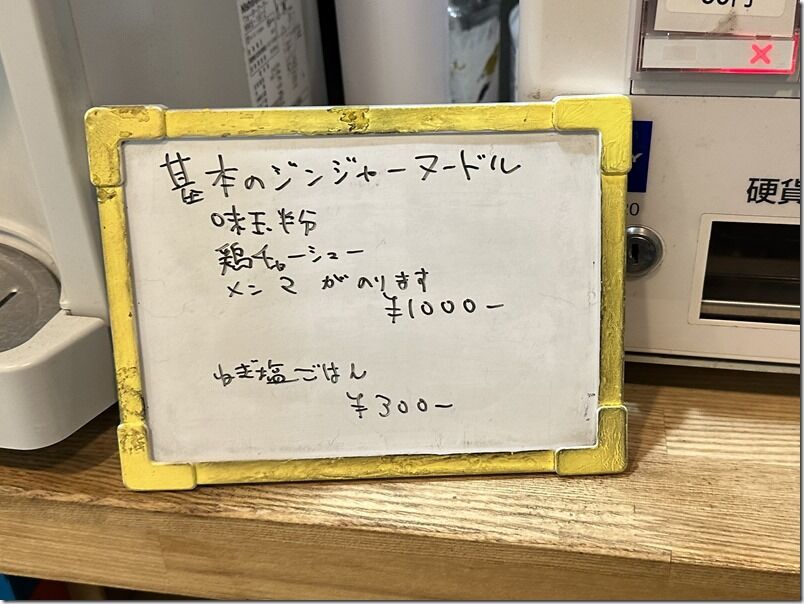 50円
硬貨
基本のジンジャーヌードル
味玉半分
鶏チャーシュー
メンマ がのります
¥1000ー
ねぎ塩ごはん
¥300ー